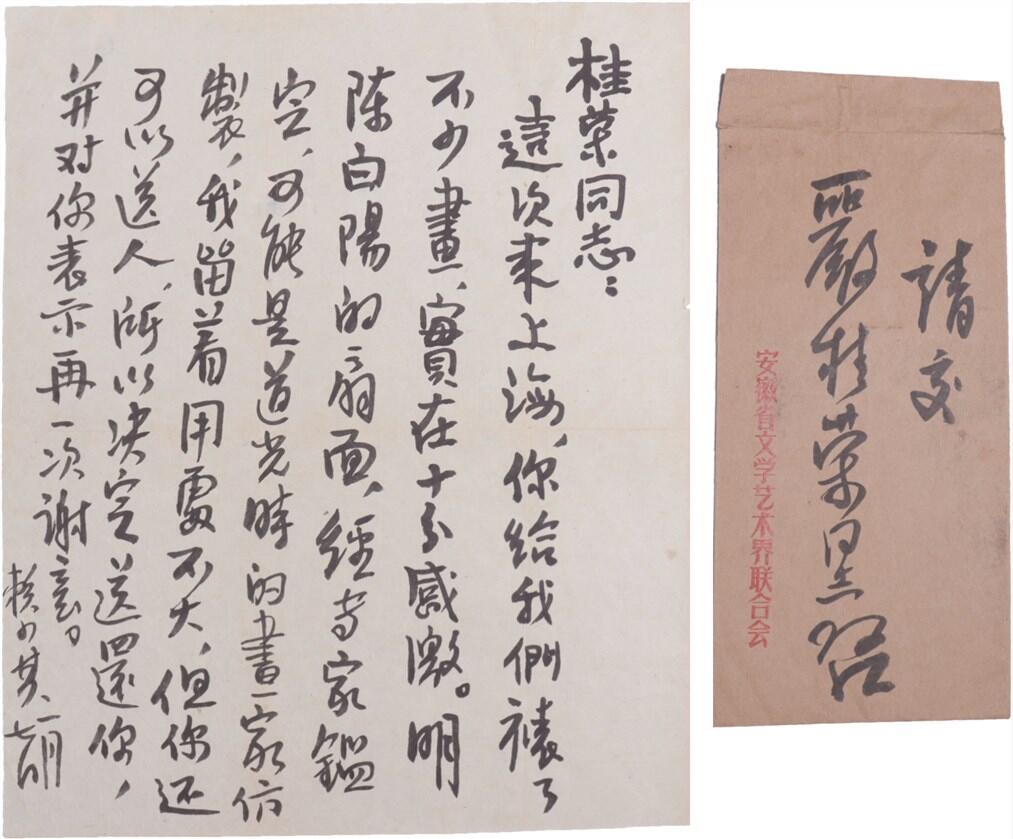 桂荣同志：
這次来上海，你给我們裱了
不少畫，實在十分感激。明
陈白陽的扇面，经专家鑑
定，可能是道光時的畫家仿
製，我留着用處不大，但你还
可以送人，所以决定送回還你，
并对你表示再一次謝意。
赖少其，一月
請交
嚴桂荣同志 啓
安徽省文学艺术界联合会